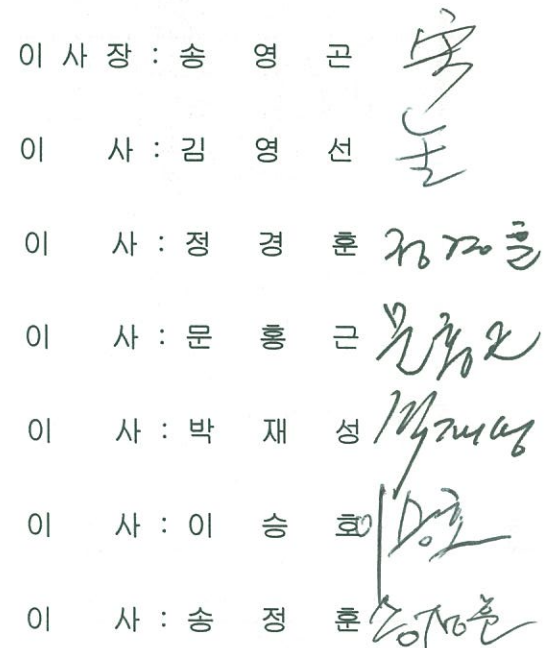 이 사 장 : 송 영 곤
이 사 : 김 영 선
이 사 : 정 경 훈 정경훈
이 사 : 문 홍 근 문홍근
이 사 : 박 재 성 박재성
이 사 : 이 승 호
이 사 : 송 정 훈 송정훈